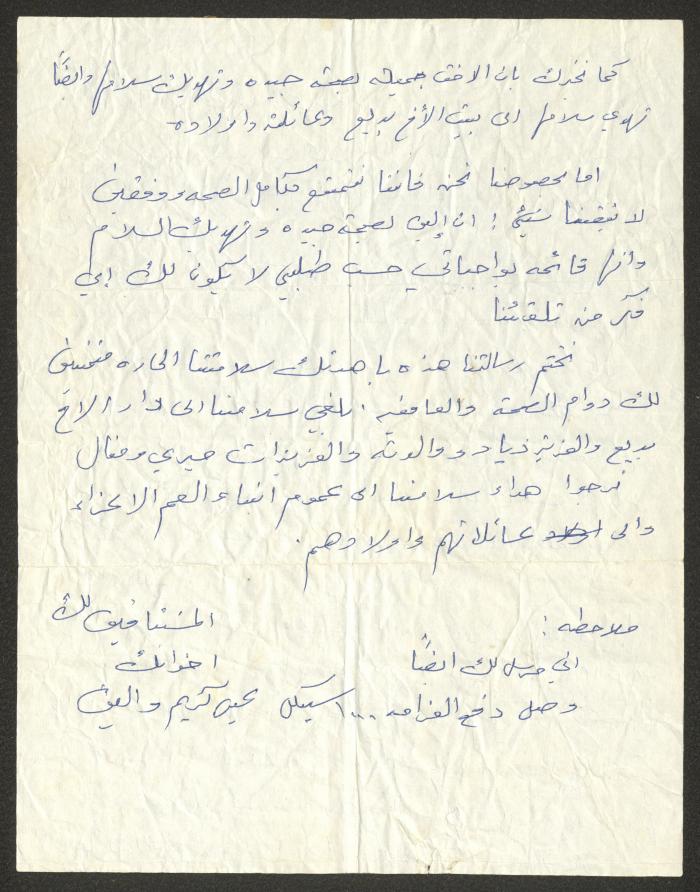 كما نخبرك بان الاخت جميله بصحه جيده وتهديك سلامها وايضًا
تهدي سلامها الى بيت الأخ بديع وعائلته واولاده
اما بخصوصنا نحن فاننا نتمتع بكامل الصحه وموفقين
لا ينقصنا شيئ ! ان إلين بصحة جيده وتهديك السلام
وانها قائمه بواجباتي حسب طلبي لا يكون لك اي
فكر من تلقائنا
نختم رسالتنا هذه باهدائك سلامتنا الحاره متمنين
لك دوام الصحة والعافيه . بلغي سلامنا الى دار الاخ
بديع والعزيز زياد ووالدته والعزيزات ميري ومنال
نرجوا هداء سلامنا الى عموم ابناء العم الاعزاء
والى عائلاتهم واولادهم .
ملاحظه : المشتاقين لك
اني مرسل لك ايضًا اخوانك
وصل دفع الغرامه ١٠٠٠ سيكل كريم والين